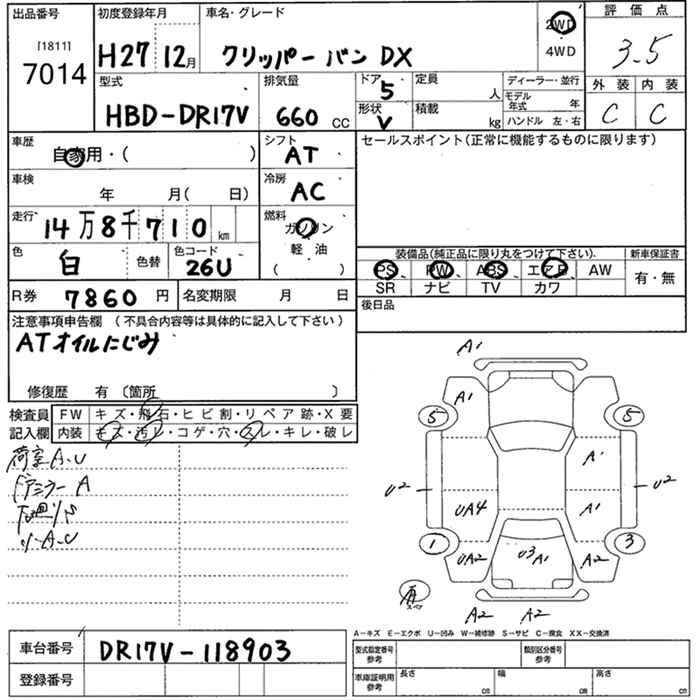 出品番号
[1811]
7014
初度登録年月
H27 12月
車名・グレード
クリッパー バン DX
2WD
4WD
評価点
3.5
外装 内装
C C
型式
HBD-DR17V
排気量
660 cc
ドア
5
形状
V
定員
人
積載
kg
ディーラー・並行
モデル年式 年
ハンドル 左・右
車歴
自家用・( )
シフト
AT
セールスポイント(正常に機能するものに限ります)
車検
年 月( 日)
冷房
AC
走行
14万8千710km
燃料
ガソリン
軽・油
( )
色
白
色替
色コード
26U
装備品(純正品に限り丸をつけて下さい).
PS、PW、ABS、エアB、AW
SR ナビ TV カワ
新車保証書
有・無
R券 7860円
名変期限 月 日
後日品
注意事項申告欄 (不具合内容等は具体的に記入して下さい)
ATオイルにじみ
修復歴 有〔箇所 〕
検査員記入欄
FW キズ・飛石・ヒビ割・リペア跡・X要
内装 キズ・汚レ・コゲ・穴・スレ・キレ・破レ
荷室A.U
ドアミラー A
下廻りS
A1
A1
5 5
A1
U2 U2
UA4 A1
1 3
UA2 U3 A1 A2
スペア
A2 A2
A-キズ E-エクボ U-凹み W-補修跡 S-サビ C-腐食 XX-交換済
車台番号 DR17V-118903
登録番号
型式指定番号 参考
類別区分番号 参考
車庫証明用 参考
長さ cm
幅 cm
高さ cm